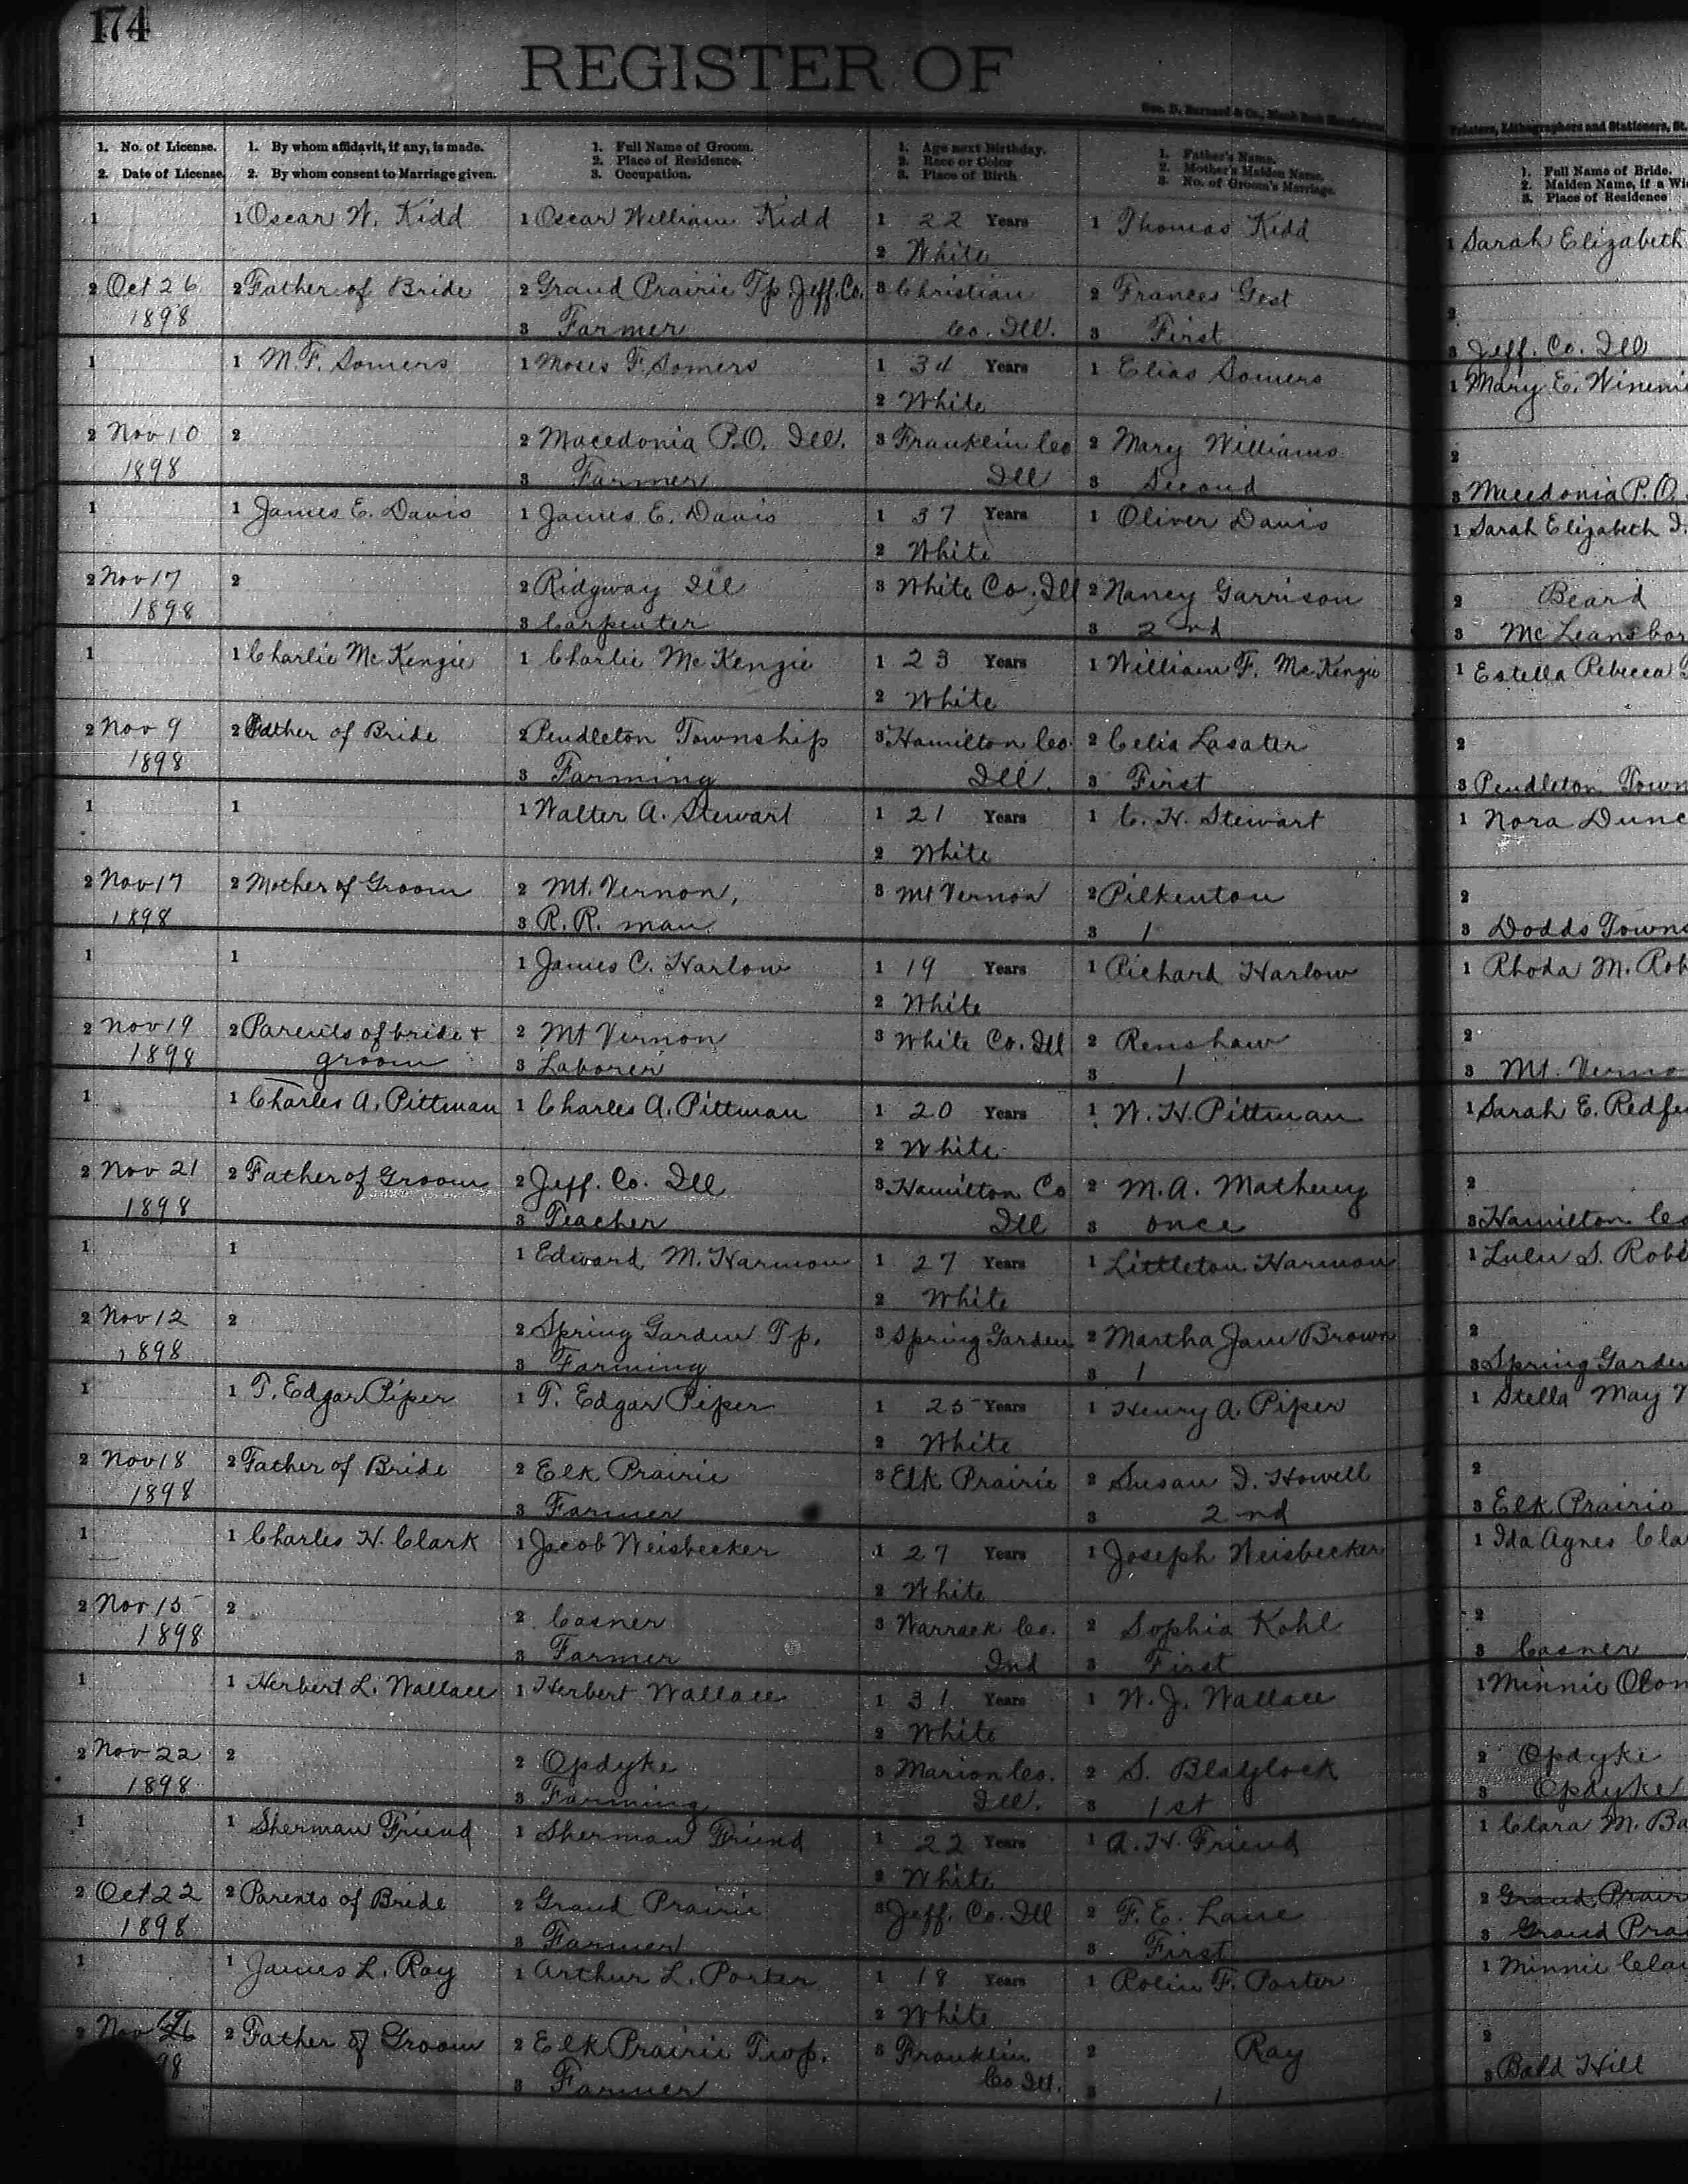 174
REGISTER OF
1. No. of License.
2. Date of License.
1. By whom affidavit, if any, is made.
2. By whom consent to Marriage given.
1. Full Name of Groom.
2. Place of Residence.
3. Occupation.
1. Age next Birthday.
2. Race or Color
3. Place of Birth
1. Father's Name.
2. Mother's Maiden Name.
3. No. of Groom's Marriage.
Printers, Lithographers and Stationers, St.
1. Full Name of Bride.
2. Maiden Name, if a Wi
3. Place of Residence
1
2 Oct 26
1898
1 Oscar W. Kidd
2 Father of Bride
1 Oscar William Kidd
2 Grand Prairie Tp. Jeff. Co.
3 Farmer
1 22 Years
2 White
3 Christian
Co. Ill.
1 Thomas Kidd
2 Frances Gest
3 First
1 Sarah Elizabeth
2
3 Jeff. Co. Ill
1
2 Nov 10
1898
1 M. F. Somers
2
1 Moses F. Somers
2 Macedonia P.O. Ill.
3 Farmer
1 34 Years
2 White
3 Franklin Co
Ill
1 Elias Somers
2 Mary Williams
3 Second
1 Mary E.
2
3 Macedonia P.O.
1
2 Nov 17
1898
1 James E. Davis
2
1 James E. Davis
2 Ridgway Ill
3 Carpenter
1 37 Years
2 White
3 White Co. Ill
1 Oliver Davis
2 Nancy Garrison
3 2nd
1 Sarah Elizabeth
2 Beard
3 McLeansbor
1
2 Nov 9
1898
1 Charlie McKenzie
2 Father of Bride
1 Charlie McKenzie
2 Pendleton Township
3 Farming
1 23 Years
2 White
3 Hamilton Co.
Ill.
1 William F. McKenzie
2 Celia Lasater
3 First
1 Estella Rebecca
2
3 Pendleton Town
1
2 Nov 17
1898
1
2 Mother of Groom
1 Walter A. Stewart
2 Mt. Vernon,
3 R. R. man.
1 21 Years
2 White
3 Mt Vernon
1 C. H. Stewart
2 Pilkenton
3 1
1 Nora Dunc
2
3 Dodds Towns
1
2 Nov 19
1898
1
2 Parents of bride +
groom
1 James C. Harlow
2 Mt Vernon
3 Laborer
1 19 Years
2 White
3 White Co. Ill
1 Richard Harlow
2 Renshaw
3 1
1 Rhoda M. Rob
2
3 Mt. Verno
1
2 Nov 21
1898
1 Charles A. Pittman
2 Father of Groom
1 Charles A. Pittman
2 Jeff. Co. Ill
3 Teacher
1 20 Years
2 White
3 Hamilton Co
Ill
1 W. H. Pittman
2 M. A. Matheny
3 once
1 Sarah E. Redfe
2
3 Hamilton Co
1
2 Nov 12
1898
1
2
1 Edward M. Harmon
2 Spring Garden Tp.
3 Farming
1 27 Years
2 White
3 Spring Garden
1 Littleton Harmon
2 Martha Jane Brown
3 1
1 Lulu S. Robe
2
3 Spring Garden
1
2 Nov 18
1898
1 T. Edgar Piper
2 Father of Bride
1 T. Edgar Piper
2 Elk Prairie
3 Farmer
1 25 Years
2 White
3 Elk Prairie
1 Henry A. Piper
2 Susan I. Howell
3 2nd
1 Stella May
2
3 Elk Prairie
1
2 Nov 15
1898
1 Charles H. Clark
2
1 Jacob Weisbecker
2 Casner
3 Farmer
1 27 Years
2 White
3 Warrack Co.
Ind
1 Joseph Weisbecker
2 Sophia Kohl
3 First
1 Ida Agnes Cla
2
3 Casner
1
2 Nov 22
1898
1 Herbert L. Wallace
2
1 Herbert Wallace
2 Opdyke
3 Farming
1 31 Years
2 White
3 Marion Co.
Ill.
1 W. J. Wallace
2 S. Blaylock
3 1st
1 Minnie
2 Opdyke
3 Opdyke
1
2 Oct 22
1898
1 Sherman Friend
2 Parents of Bride
1 Sherman Friend
2 Grand Prairie
3 Farmer
1 22 Years
2 White
3 Jeff. Co. Ill
1 A. H. Friend
2 F. E. Lane
3 First
1 Clara M. Ba
2 Grand Prair
3 Grand Prai
1
2 Nov
98
1 James L. Ray
2 Father of Groom
1 Arthur L. Porter
2 Elk Prairie Twp.
3 Farmer
1 18 Years
2 White
3 Franklin
Co Ill.
1 Rolin F. Porter
2 Ray
3 1
1 Minnie Clai
2
3 Bald Hill